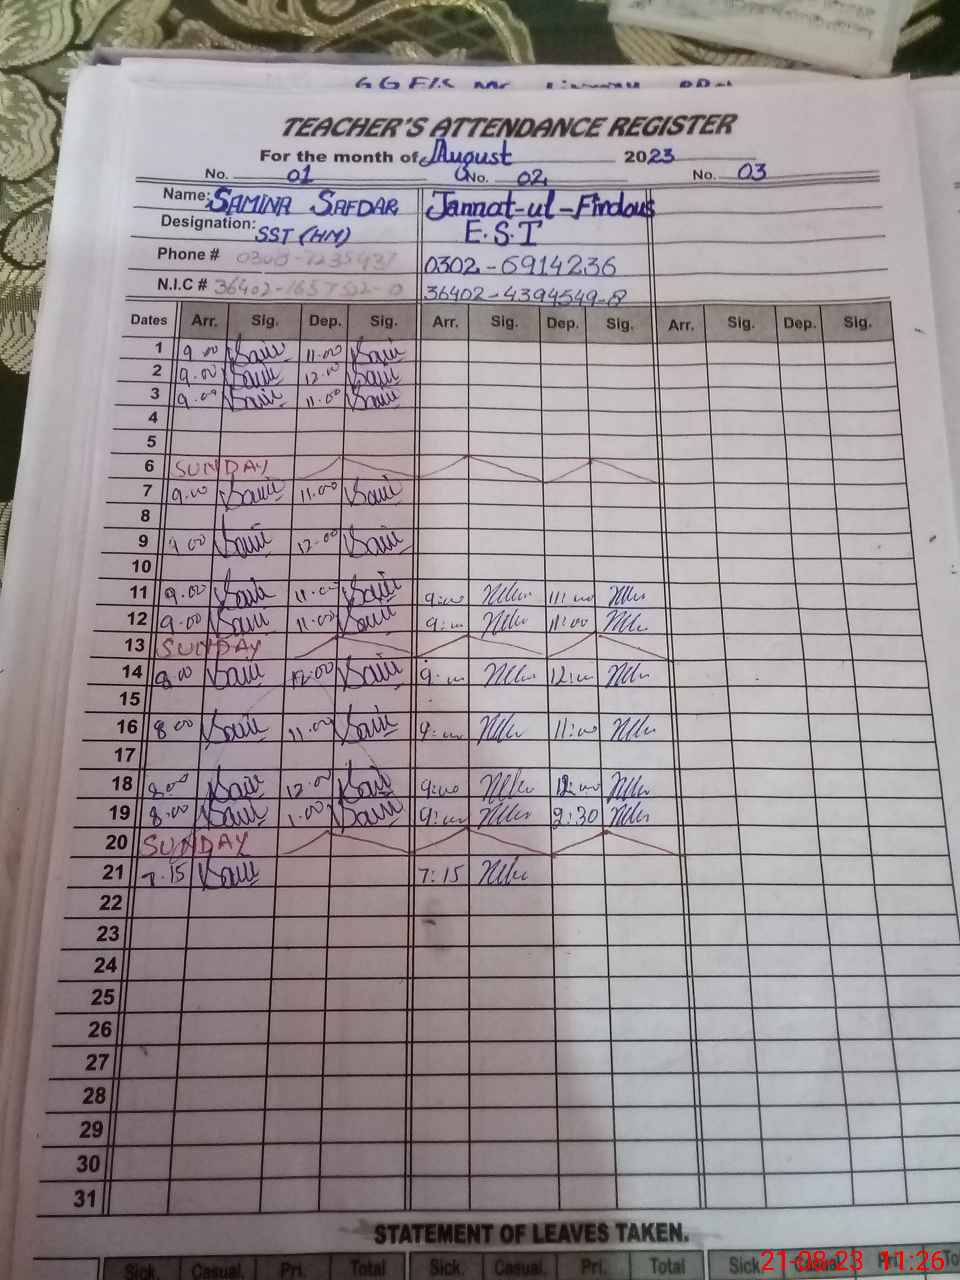 TEACHER'S ATTENDANCE REGISTER
For the month of August 2023
No. 01 No. 02 No. 03
Name: SAMINA SAFDAR Jannat-ul-Firdous
Designation: SST (HM) E.S.T
Phone # 0302-6914236
N.I.C # 36402-4394549-8
Dates Arr. Sig. Dep. Sig. Arr. Sig. Dep. Sig. Arr. Sig. Dep. Sig.
1 9.00 11.00
2 9.00 12.00
3 9.00 11.00
4
5
6 SUNDAY
7 9.00 11.00
8
9 9.00 12.00
10
11 9.00 11.00 9:00 11:00
12 9.00 11.00 9:00 11:00
13 SUNDAY
14 8.00 12.00 9:00 12:00
15
16 8.00 11.00 9:00 11:00
17
18 8.00 12.00 9:00 12:00
19 8.00 1.00 9:00 2:30
20 SUNDAY
21 7.15 7:15
22
23
24
25
26
27
28
29
30
31
STATEMENT OF LEAVES TAKEN.
Sick. Casual. Pri. Total Sick. Casual. Pri. Total Sick. Casual. Pri. To
21-08-23 11:26